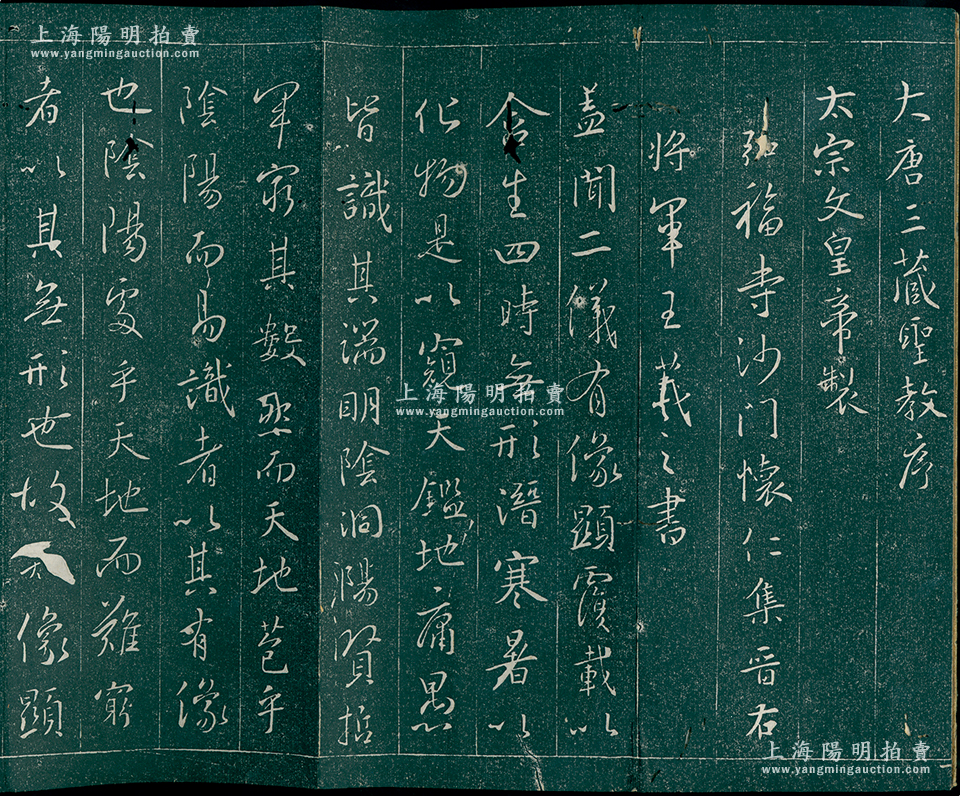 大唐三藏聖教序
太宗文皇帝製
弘福寺沙門懷仁集晉右
將軍王羲之書
盖聞二儀有像顯覆載以
含生四時無形潛寒暑以
化物是以窺天鑑地庸愚
皆識其端明陰洞陽賢哲
罕窮其數然而天地苞乎
陰陽而易識者以其有像
也陰陽處乎天地而難窮
者以其無形也故像顯
上海陽明拍賣
www.yangmingauction.com
上海陽明拍賣
www.yangmingauction.com
上海陽明拍賣
www.yangmingauction.com